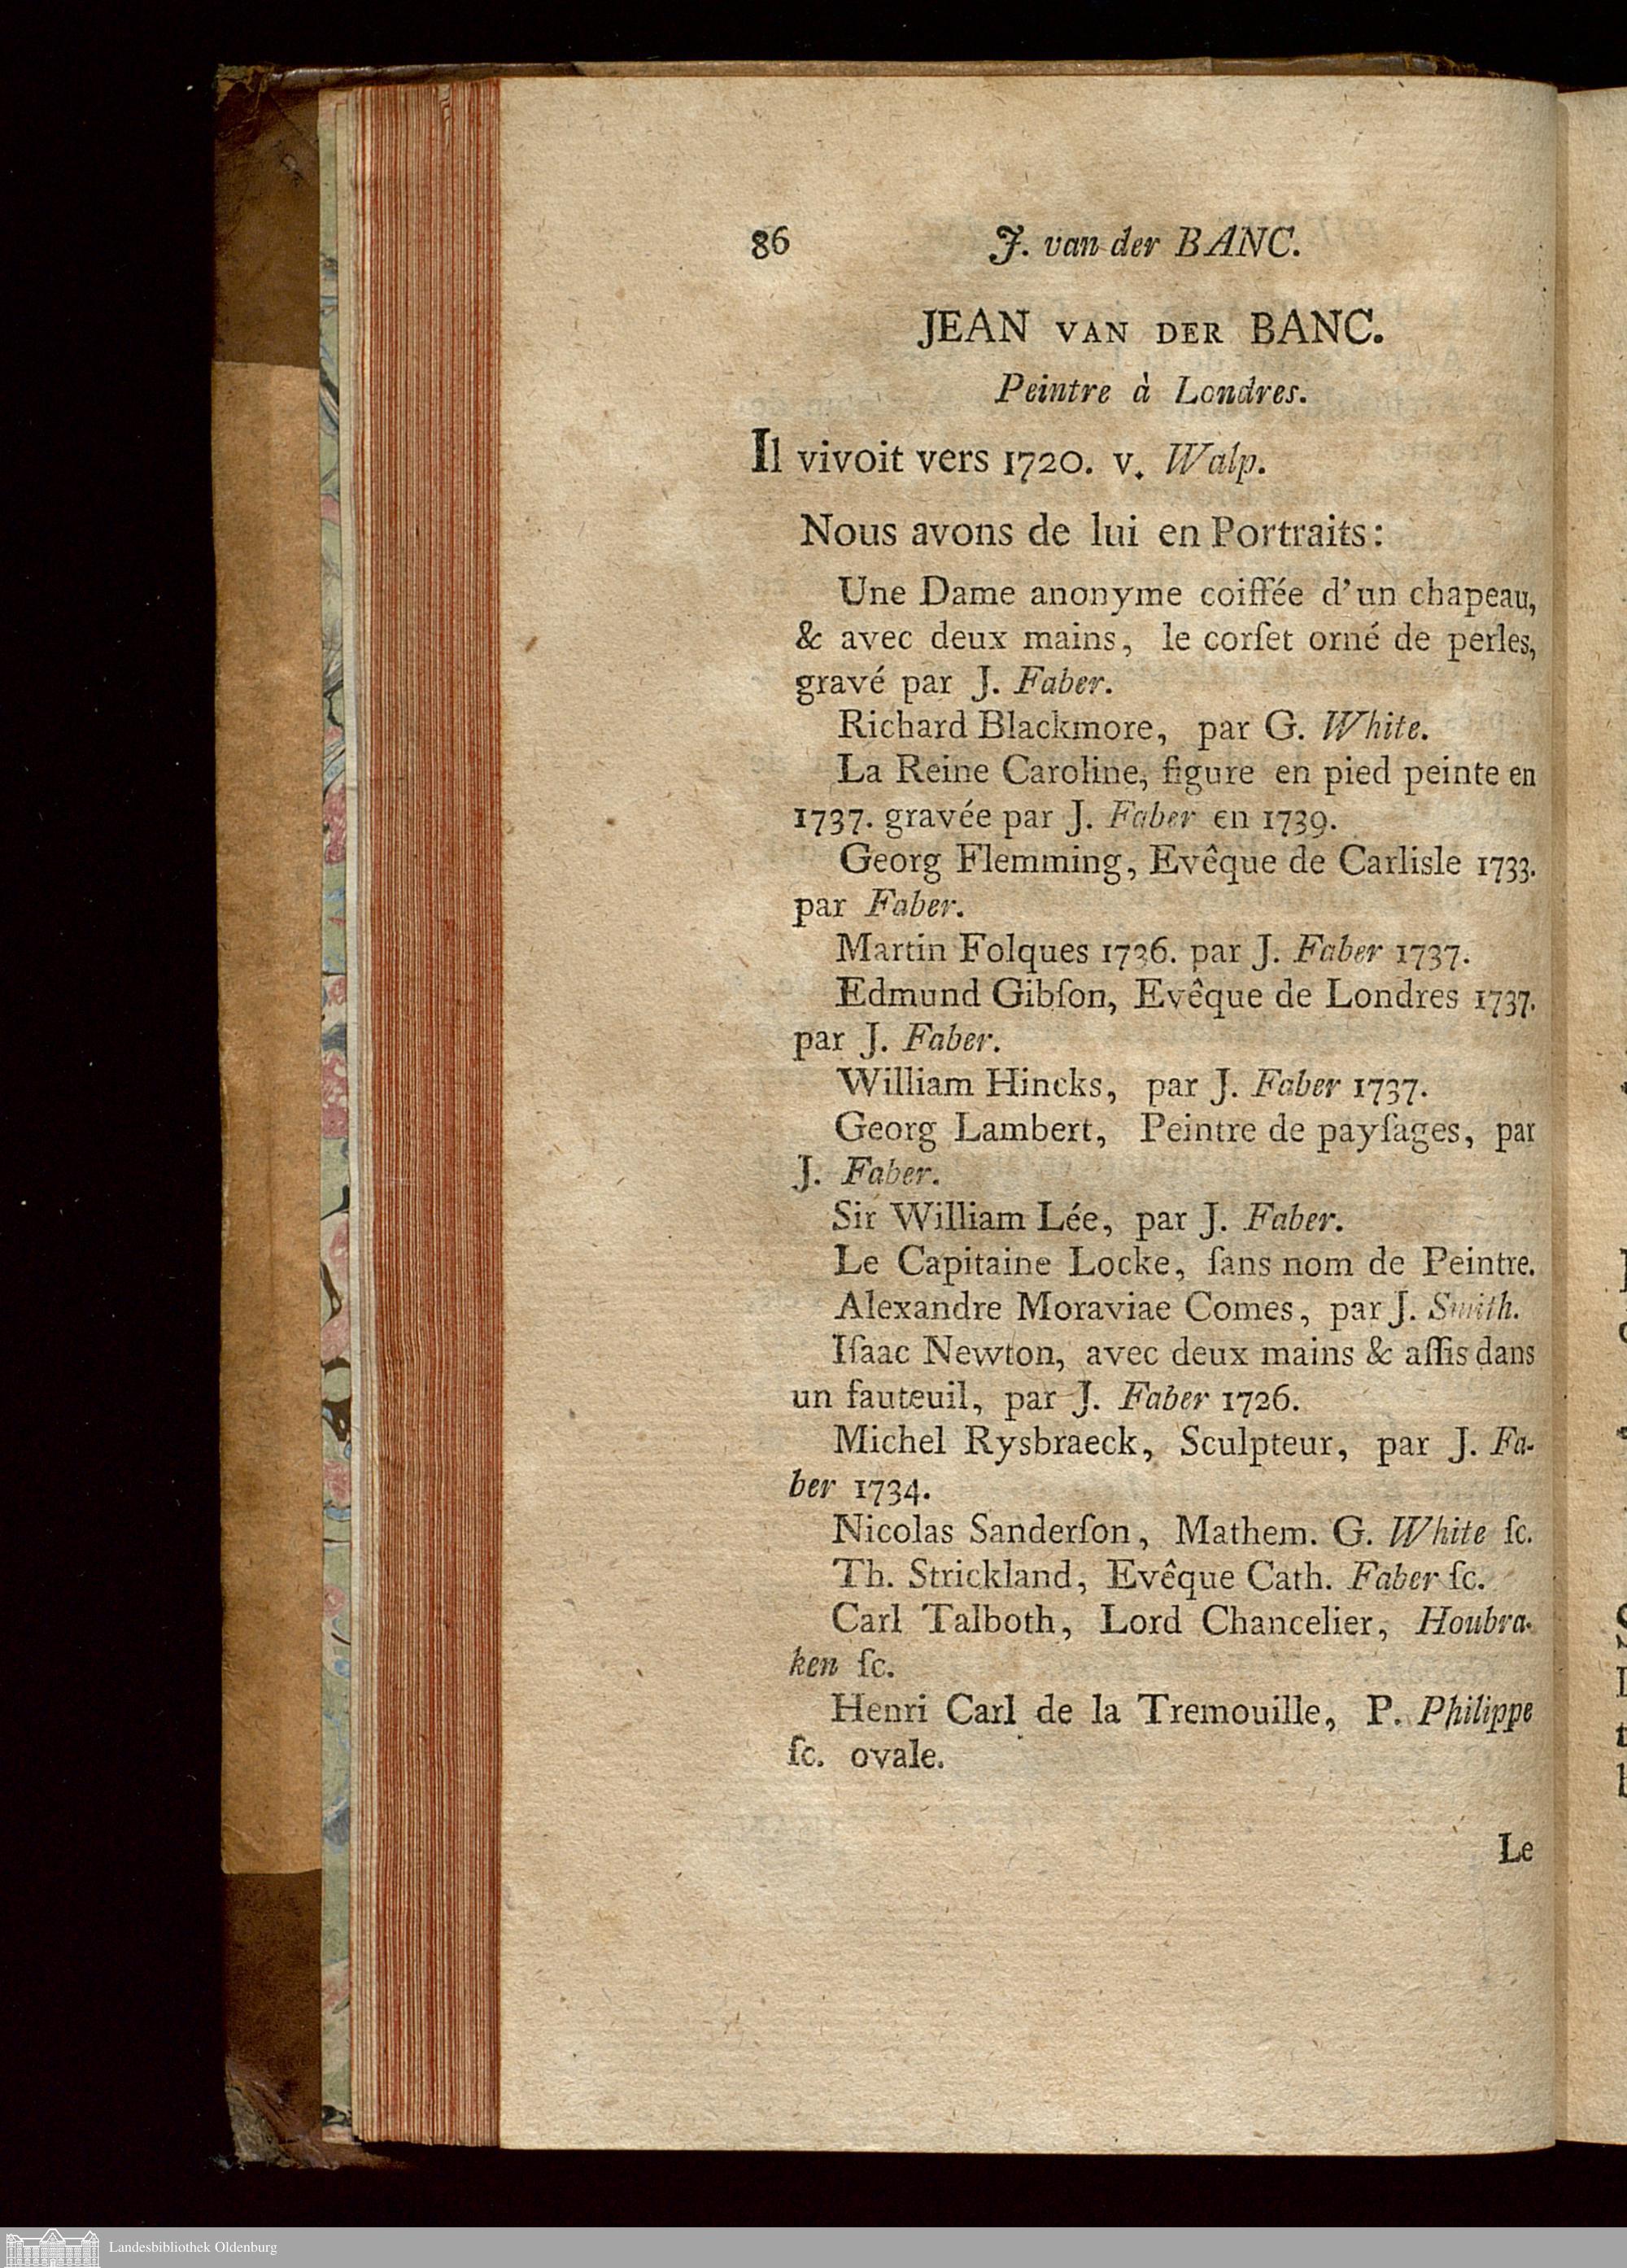 86 J. van der BANC.
JEAN VAN DER BANC.
Peintre à Londres.
Il vivoit vers 1720. v. Walp.
Nous avons de lui en Portraits:
Une Dame anonyme coiffée d'un chapeau,
& avec deux mains, le corſet orné de perles,
gravé par J. Faber.
Richard Blackmore, par G. White.
La Reine Caroline, figure en pied peinte en
1737. gravée par J. Faber en 1739.
Georg Flemming, Evêque de Carlisle 1733.
par Faber.
Martin Folques 1736. par J. Faber 1737.
Edmund Gibſon, Evêque de Londres 1737.
par J. Faber.
William Hincks, par J. Faber 1737.
Georg Lambert, Peintre de payſages, par
J. Faber.
Sir William Lée, par J. Faber.
Le Capitaine Locke, ſans nom de Peintre.
Alexandre Moraviae Comes, par J. Smith.
Iſaac Newton, avec deux mains & aſſis dans
un fauteuil, par J. Faber 1726.
Michel Rysbraeck, Sculpteur, par J. Fa-
ber 1734.
Nicolas Sanderſon, Mathem. G. White ſc.
Th. Strickland, Evêque Cath. Faber ſc.
Carl Talboth, Lord Chancelier, Houbra-
ken ſc.
Henri Carl de la Tremouille, P. Philippe
ſc. ovale.
Le
Landesbibliothek Oldenburg